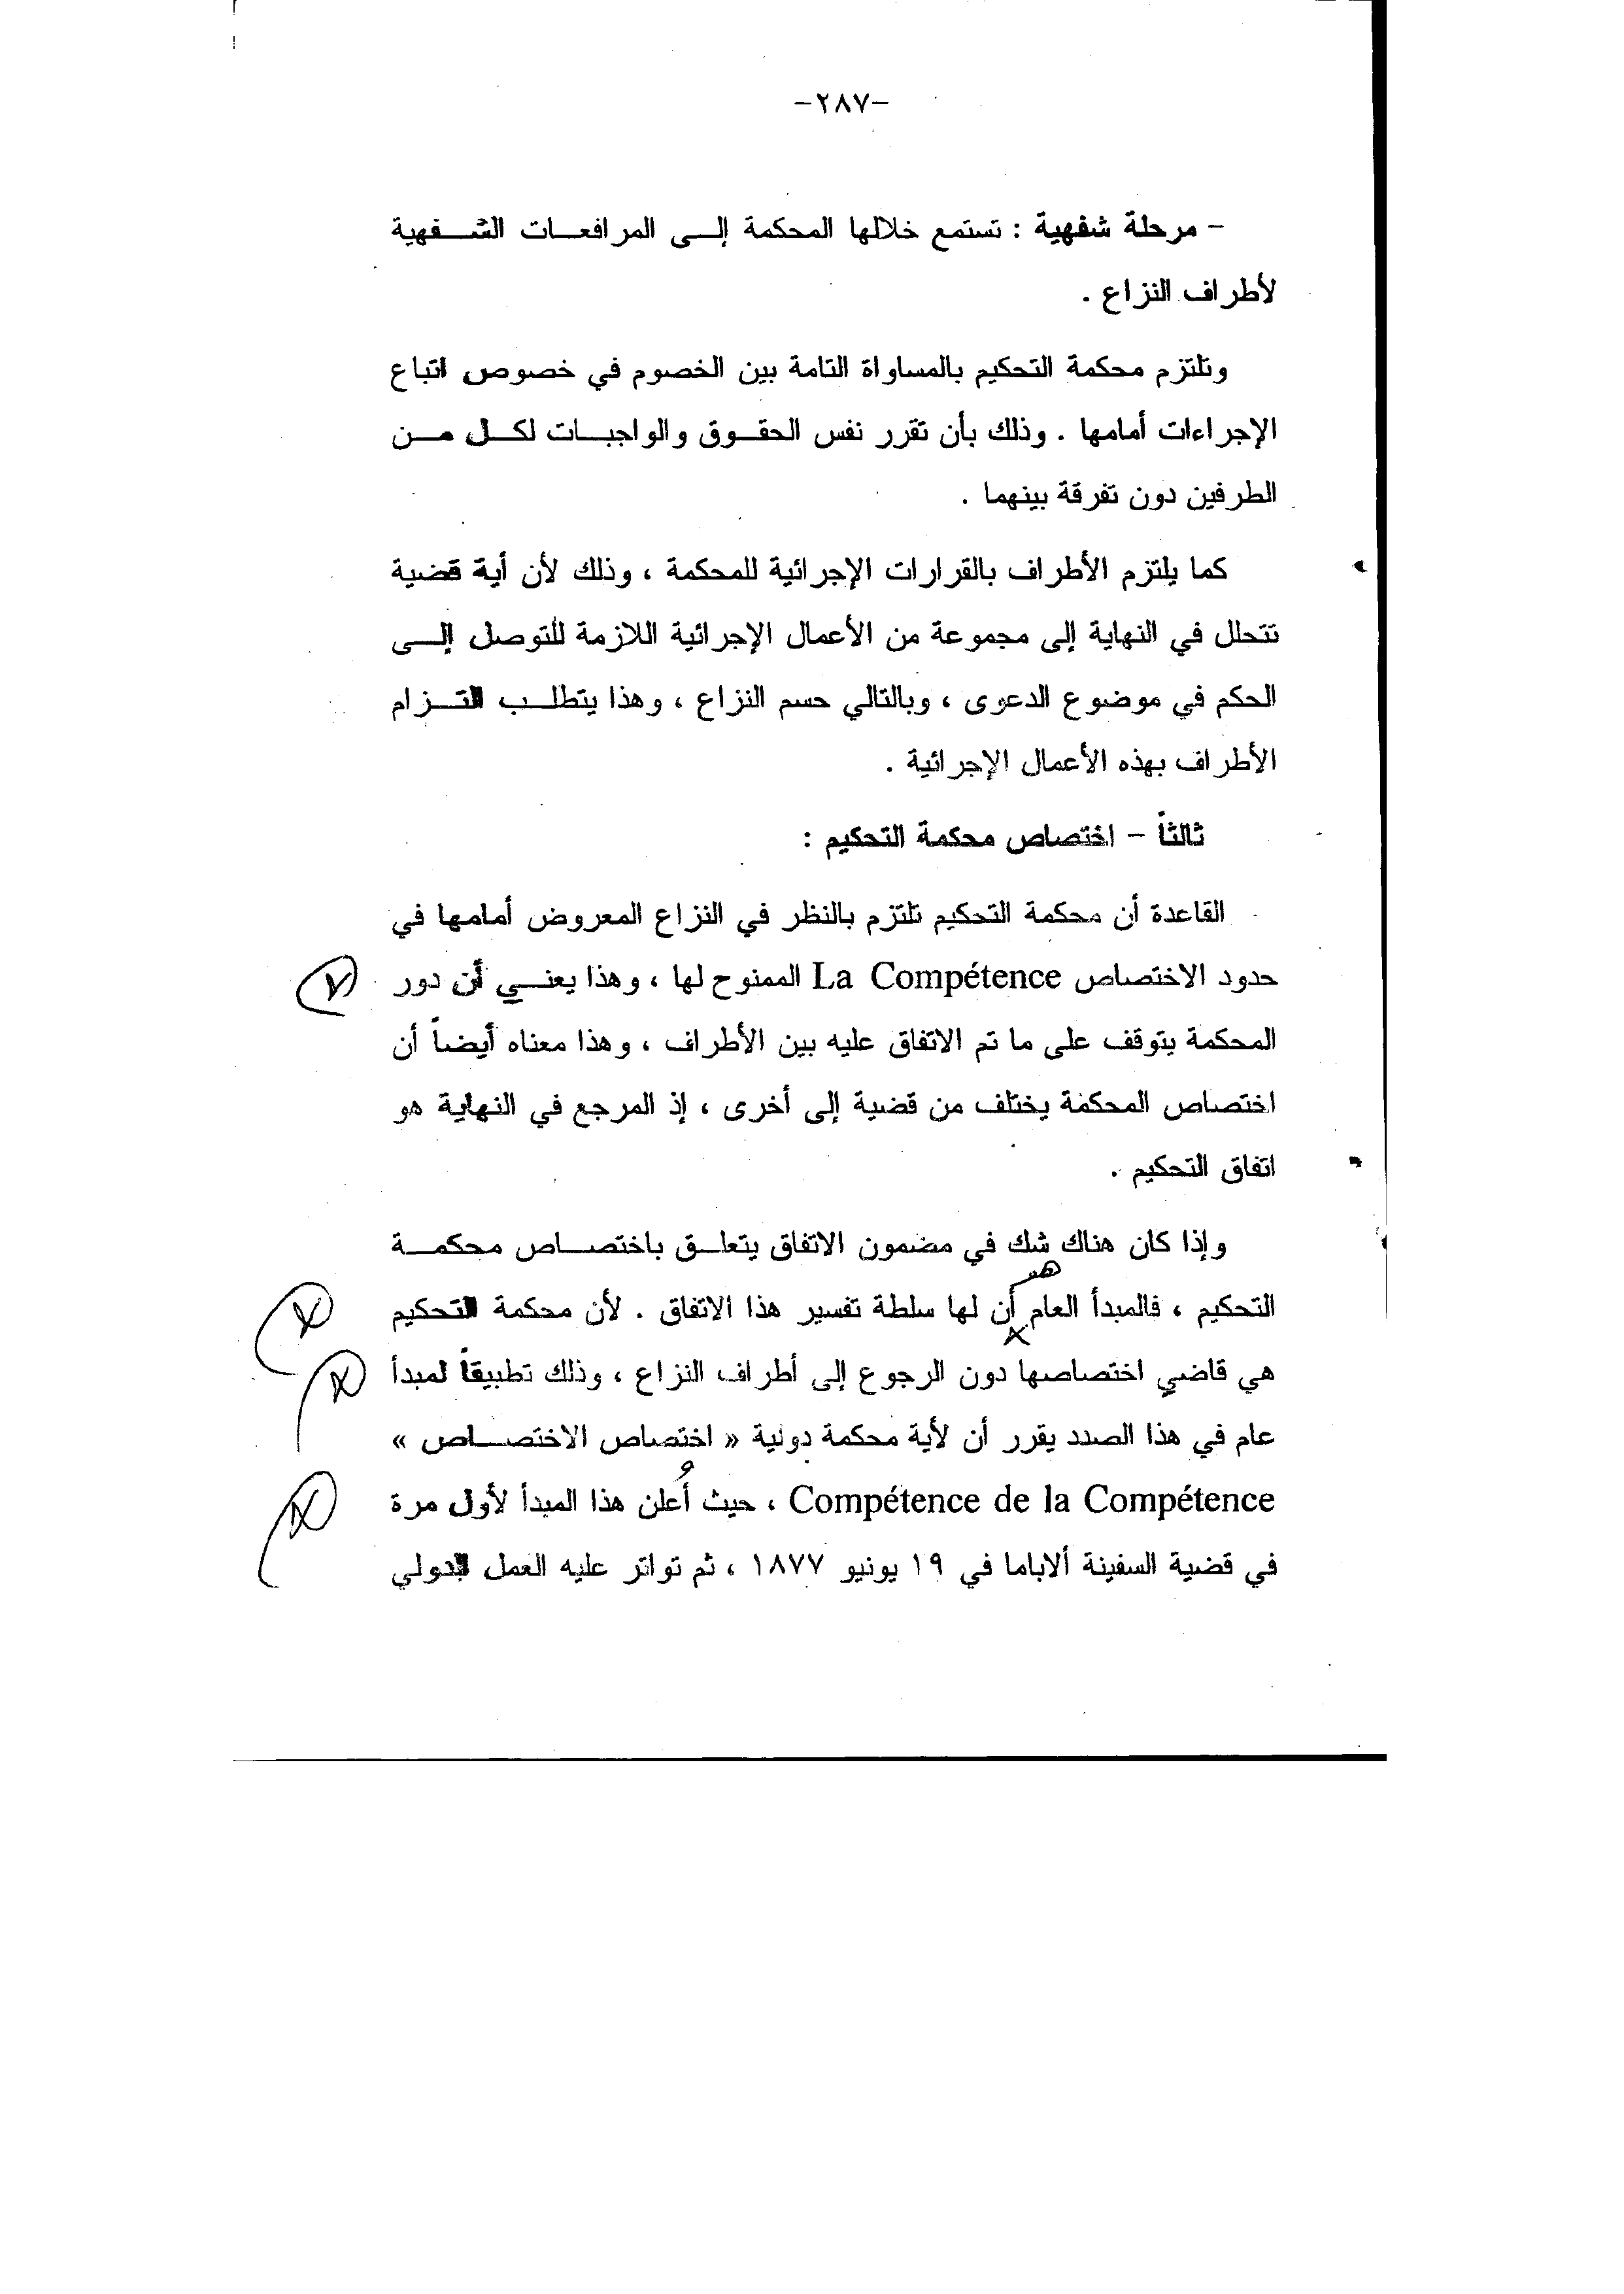 -٢٨٧-
- مرحلة شفهية : تستمع خلالها المحكمة إلى المرافعات الشفهية
لأطراف النزاع .
وتلتزم محكمة التحكيم بالمساواة التامة بين الخصوم في خصوص اتباع
الإجراءات أمامها . وذلك بأن تقرر نفس الحقوق والواجبات لكل من
الطرفين دون تفرقة بينهما .
كما يلتزم الأطراف بالقرارات الإجرائية للمحكمة ، وذلك لأن أية قضية
تتحلل في النهاية إلى مجموعة من الأعمال الإجرائية اللازمة للتوصل إلى
الحكم في موضوع الدعوى ، وبالتالي حسم النزاع ، وهذا يتطلب التزام
الأطراف بهذه الأعمال الإجرائية .
ثالثاً - اختصاص محكمة التحكيم :
القاعدة أن محكمة التحكيم تلتزم بالنظر في النزاع المعروض أمامها في
حدود الاختصاص La Compétence الممنوح لها ، وهذا يعني أن دور
المحكمة يتوقف على ما تم الاتفاق عليه بين الأطراف ، وهذا معناه أيضاً أن
اختصاص المحكمة يختلف من قضية إلى أخرى ، إذ المرجع في النهاية هو
اتفاق التحكيم .
وإذا كان هناك شك في مضمون الاتفاق يتعلق باختصاص محكمة
هو
التحكيم ، فالمبدأ العام أن لها سلطة تفسير هذا الاتفاق . لأن محكمة التحكيم
هي قاضي اختصاصها دون الرجوع إلى أطراف النزاع ، وذلك تطبيقاً لمبدأ
عام في هذا الصدد يقرر أن لأية محكمة دولية « اختصاص الاختصاص »
Compétence de la Compétence ، حيث أُعلن هذا المبدأ لأول مرة
في قضية السفينة ألاباما في ١٩ يونيو ١٨٧٧ ، ثم تواتر عليه العمل الدولي